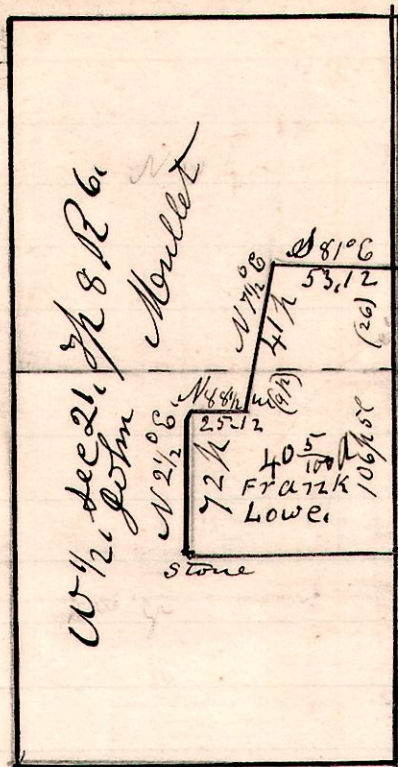 W 1/2, Sec 21, Tp 8 R 6,
John Moullet
S 81° E
53,12
(26)
N 7 1/2° E
41 p
N 88 1/2 W
(9 1/2)
25,12
N 2 1/2° E
72 p
40 5/100 A
Frank
Lowe.
106 p 5 l
Stone